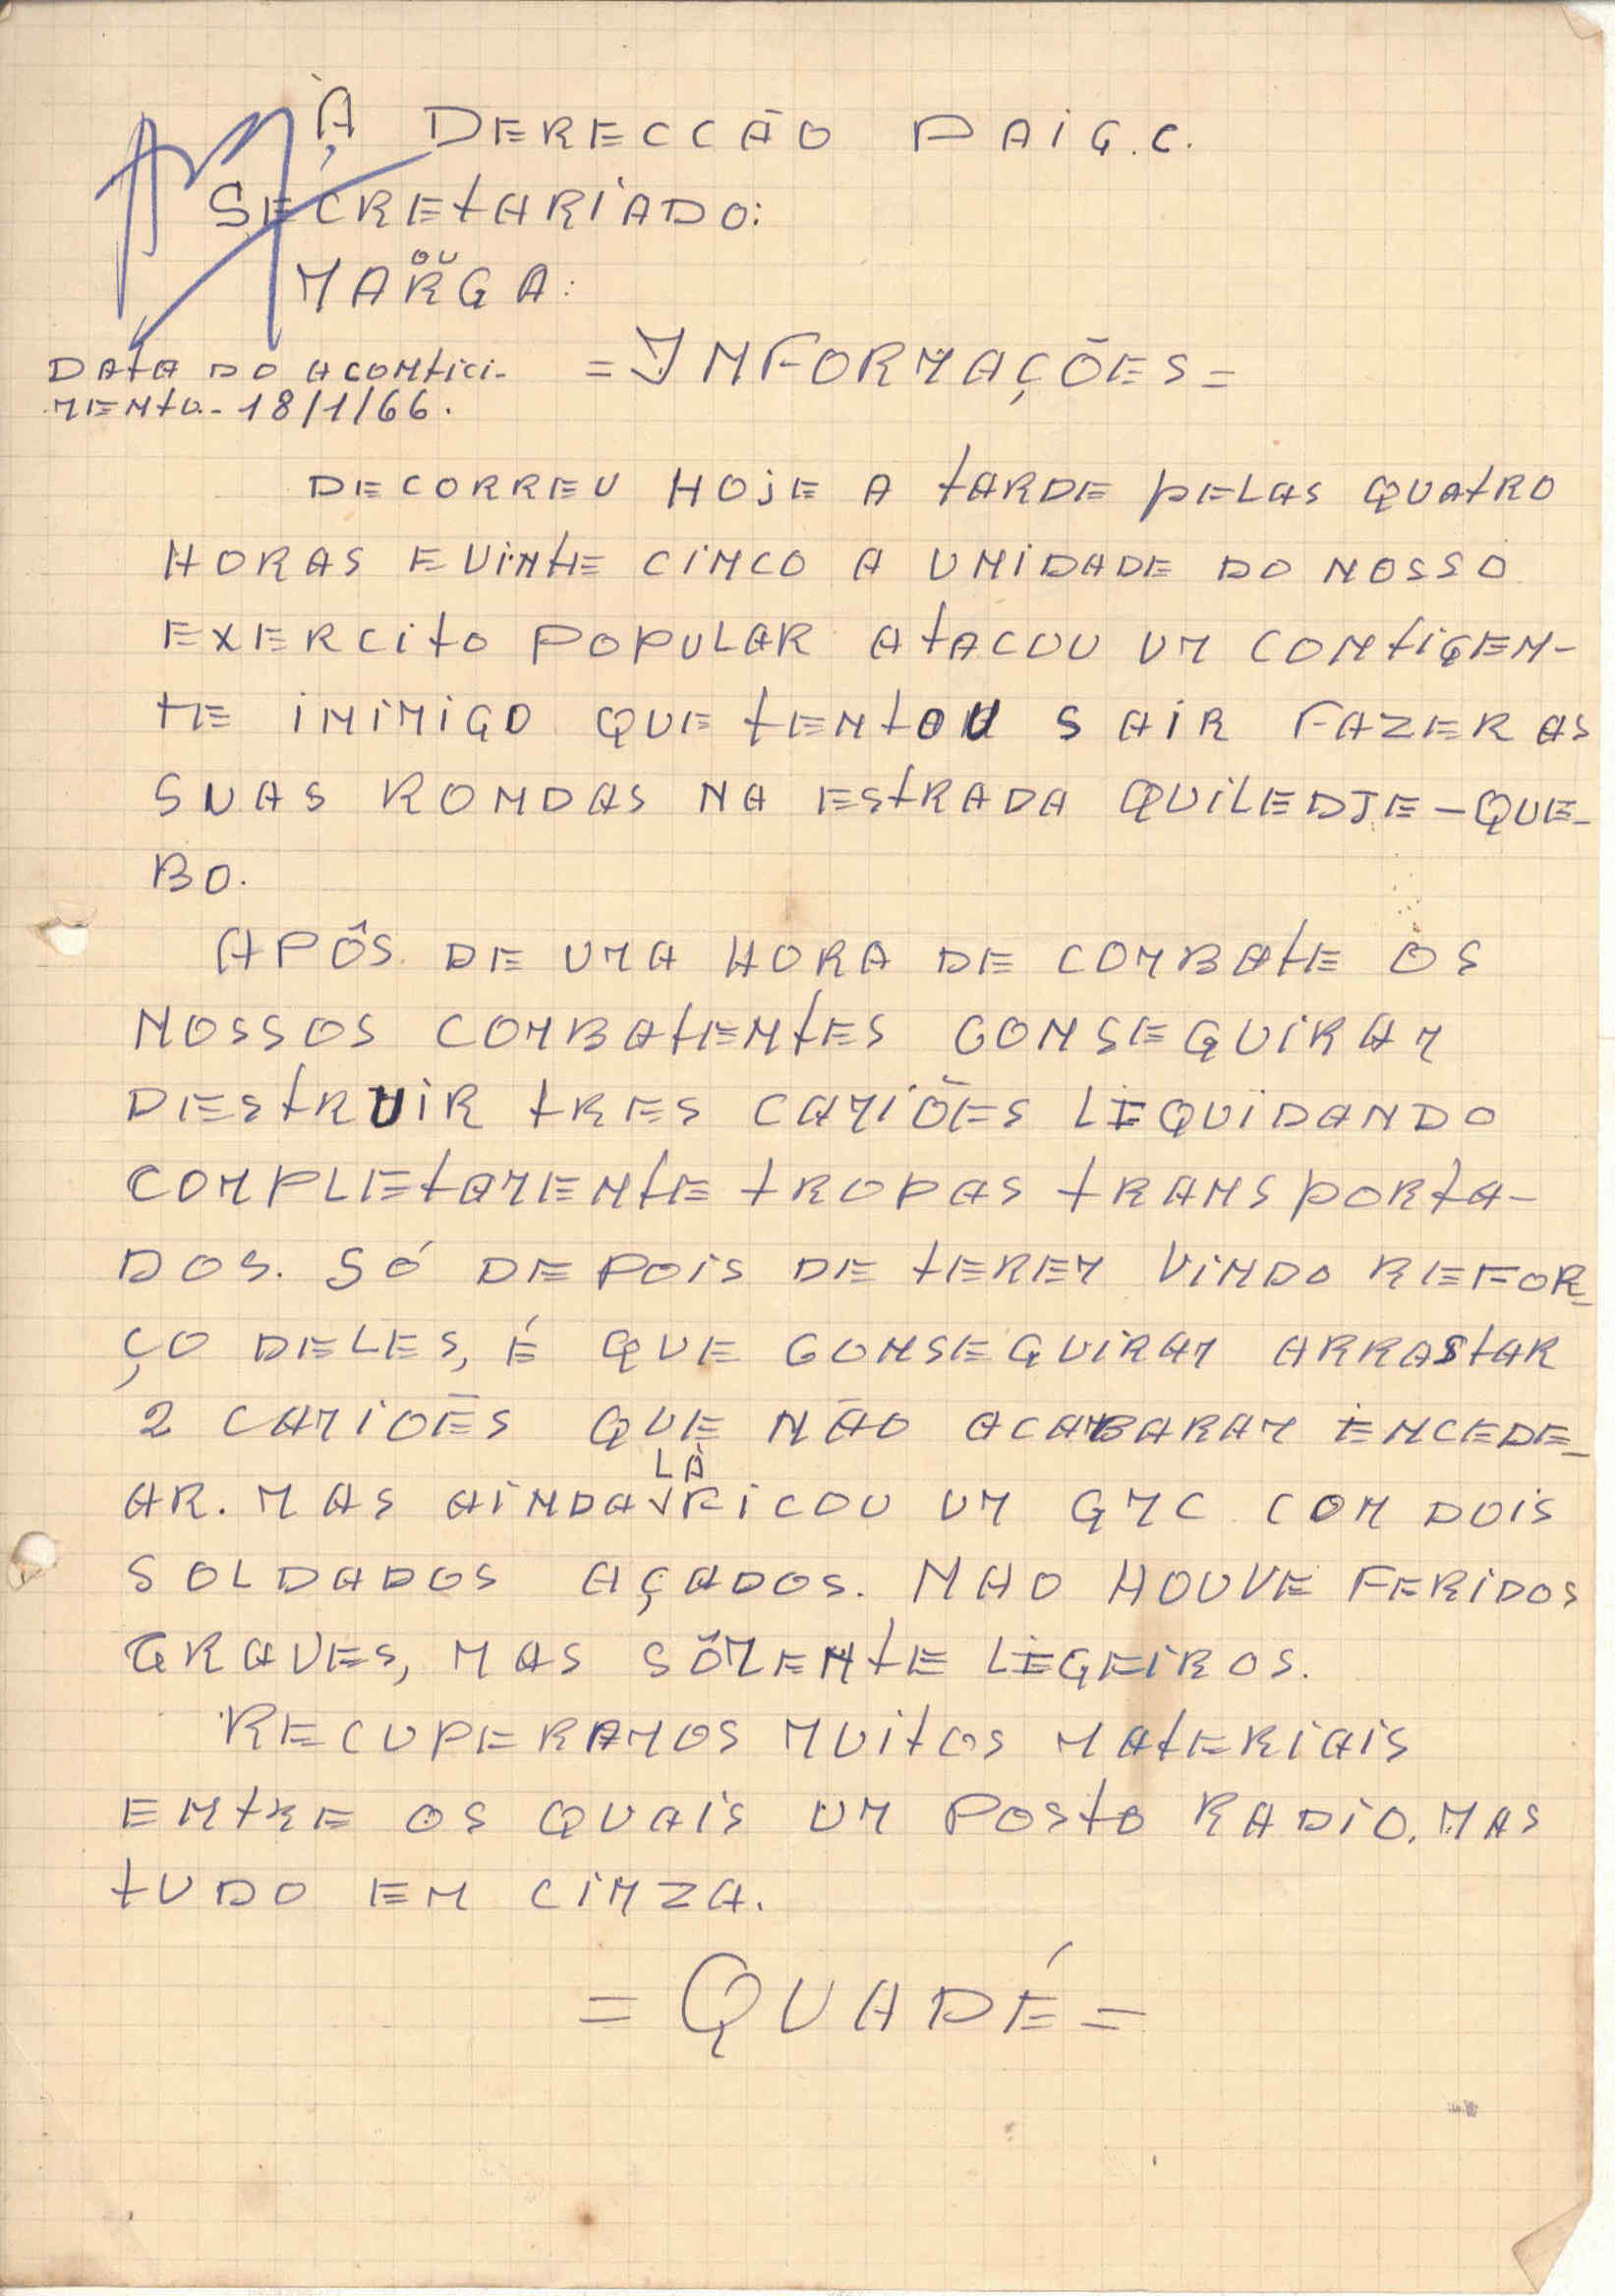 À DERECCÃO PAIG.C.
SECRETARIADO:
OU
MARGA:
DATA DO ACONTICI-
MENTO - 18/1/66.
= INFORMAÇÕES =
DECORREU HOJE A TARDE PELAS QUATRO
HORAS E VINTE CINCO A UNIDADE DO NOSSO
EXERCITO POPULAR ATACOU UM CONTIGEN-
TE INIMIGO QUE TENTOU SAIR FAZER AS
SUAS RONDAS NA ESTRADA QUILEDJE-QUE-
BO.
APÔS DE UMA HORA DE COMBATE OS
NOSSOS COMBATENTES CONSEGUIRAM
DESTRUIR TRES CAMIÕES LIQUIDANDO
COMPLETAMENTE TROPAS TRANSPORTA-
DOS. SÓ DEPOIS DE TEREM VINDO REFOR-
ÇO DELES, É QUE CONSEGUIRAM ARRASTAR
2 CAMIOES QUE NÃO ACABARAM ENCEDE-
LÀ
AR. MAS AINDA FICOU UM GMC COM DOIS
SOLDADOS AÇADOS. NAO HOUVE FERIDOS
GRAVES, MAS SÒMENTE LIGEIROS.
RECUPERAMOS MUITOS MATERIAIS
ENTRE OS QUAIS UM POSTO RADIO. MAS
TUDO EM CINZA.
= QUADÉ =